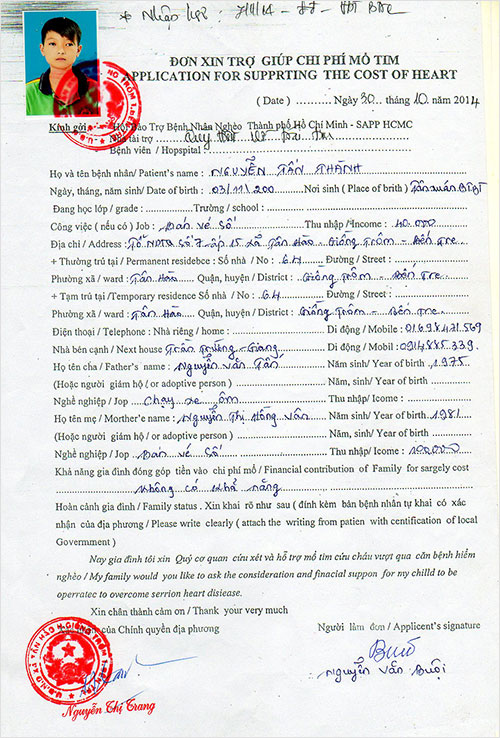 * Nhập
ĐƠN XIN TRỢ GIÚP CHI PHÍ MỔ TIM
APPLICATION FOR SUPPRTING THE COST OF HEART
( Date ) .............Ngày 30. tháng .10. năm 2014
Kính gởi : - Hội Bảo Trợ Bệnh Nhân Nghèo Thành phố Hồ Chí Minh - SAPP HCMC
tài trợ
Bệnh viện / Hopspital
Họ và tên bệnh nhân/ Patient's name : NGUYỄN TẤN THÀNH
Ngày, tháng, năm sinh/ Date of birth : 03/11/200 Nơi sinh ( Place of birth ) Tân xuân BTBT
Đang học lớp / grade : ................Trường / school :
Công việc ( nếu có ) Job : Bán vé số Thu nhập /Income : 40.000
Địa chỉ / Address : Tổ NDTQ Số 7 - ấp 15 xã Tân Hào - Giồng Trôm - Bến Tre
+ Thường trú tại / Permanent residebce : Số nhà / No : 64 Đường / Street :
Phường xã / ward : Tân Hào Quận, huyện / District : Giồng Trôm - Bến Tre
+ Tạm trú tại /Temporary residence Số nhà / No : 64 Đường / Street :
Phường xã / ward : Tân Hào Quận, huyện / District : Giồng Trôm - Bến Tre.
Điện thoại / Telephone : Nhà riêng / home : Di động / Mobile : 01698421569
Nhà bên cạnh / Next house Trần Trường - Giang Di động / Mobil : 0914885339
Họ tên cha / Father's name : Nguyễn văn Tấn Năm sinh/ Year of birth .1975
(Hoặc người giám hộ ( or adoptive person ) Năm, sinh/ Year of birth
Nghề nghiệp / Jop Chạy xe ôm Thu nhập/ Icome :
Họ tên mẹ / Morther's name : Nguyễn Thị Hồng Vân Năm sinh/ Year of birth .1981
(Hoặc người giám hộ / or adoptive person ) Năm, sinh/ Year of birth
Nghề nghiệp / Jop Bán vé số Thu nhập/ Icome : 100000
Khả năng gia đình đóng góp tiền vào chi phí mổ / Financial contribution of Family for sargely cost
không có khả năng
Hoàn cảnh gia đình / Family status . Xin khai rõ như sau ( đính kèm bản bệnh nhân tự khai có xác
nhận của địa phương / Please write clearly ( attach the writing from patien with centification of local
Goverment )
Nay gia đình tôi xin Quý cơ quan cứu xét và hỗ trợ mổ tim cứu cháu vượt qua căn bệnh hiểm
nghèo / My family would you like to ask the consideration and finacial suppon for my chilld to be
operratec to overcome serrion heart disiease.
Xin chân thành cảm ơn / Thank your very much
của Chính quyền địa phương Người làm đơn / Applicent's signature
Nguyễn Thị Trang
Nguyễn văn Buội